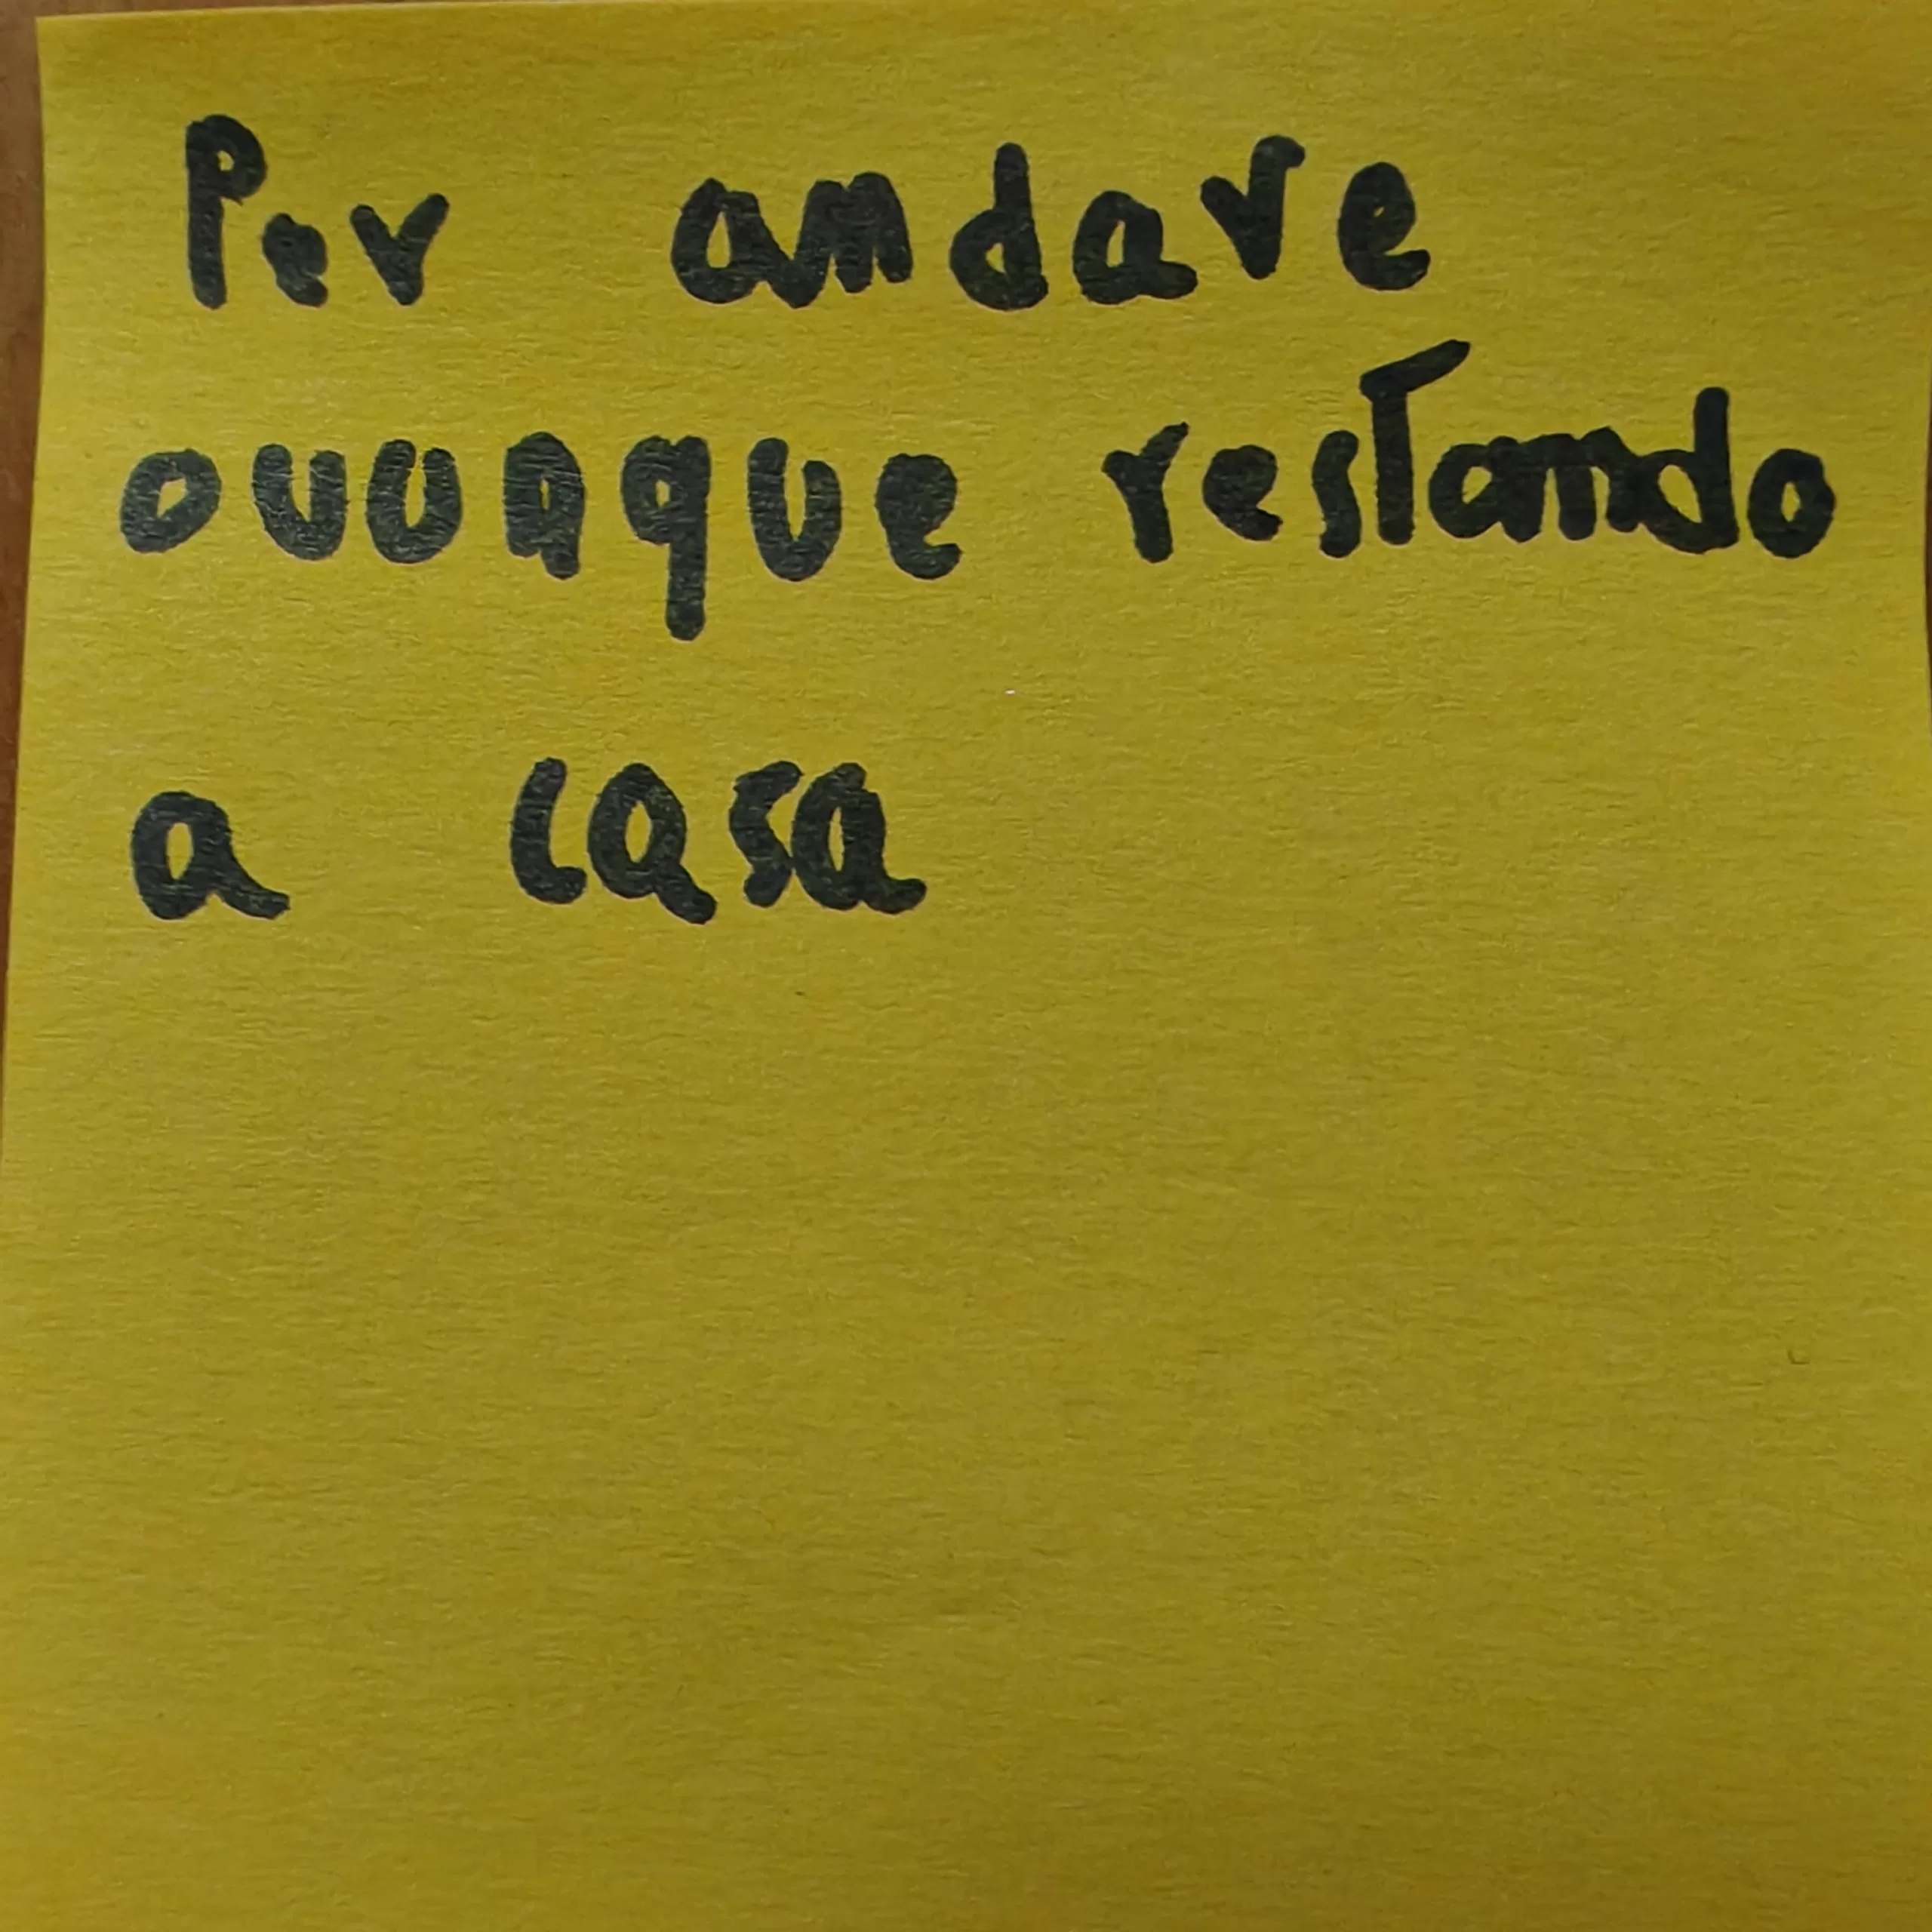 Per andare
ovunque restando
a casa